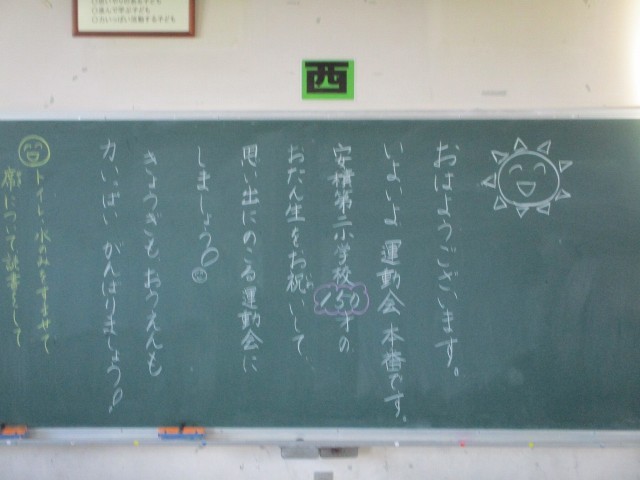 ○進んで学ぶ子ども
○力いっぱい活動する子ども
西
おはようございます。
いよいよ 運動会 本番です。
安積第二小学校150才の
おたん生をお祝いして、
思い出にのこる運動会に
しましょう!
きょうぎも、おうえんも
力いっぱい がんばりましょう!
トイレ・水のみをすませて
席について読書をして